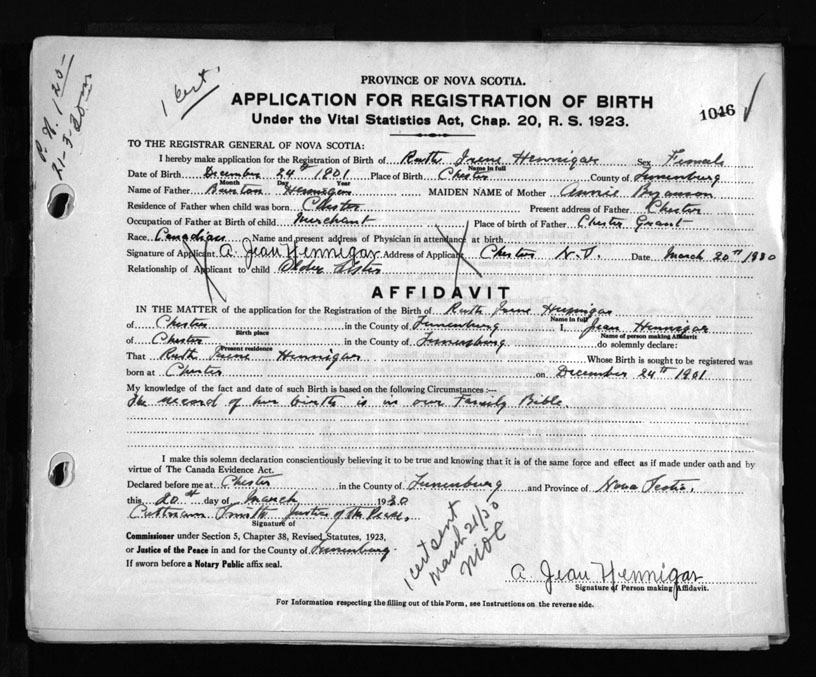 1 Cert.
P. N. 120-
21-3-20
PROVINCE OF NOVA SCOTIA.
APPLICATION FOR REGISTRATION OF BIRTH
1046
Under the Vital Statistics Act, Chap. 20, R. S. 1923.
TO THE REGISTRAR GENERAL OF NOVA SCOTIA:
I hereby make application for the Registration of Birth of Ruth Irene Hennigar Sex Female
Name in full
Date of Birth December 24th 1901 Place of Birth Chester County of Lunenburg
Month Day Year
Name of Father Burton Hennigar MAIDEN NAME of Mother Annie Bezanson
Residence of Father when child was born Chester Present address of Father Chester
Occupation of Father at Birth of child Merchant Place of birth of Father Chester Grant
Race Canadian Name and present address of Physician in attendance at birth
Signature of Applicant A. Jean Hennigar Address of Applicant Chester N.S. Date March 20th 1930
Relationship of Applicant to child Older Sister
AFFIDAVIT
IN THE MATTER of the application for the Registration of the Birth of Ruth Irene Hennigar
Name in full
of Chester in the County of Lunenburg I, Jean Hennigar
Birth place Name of person making Affidavit
of Chester in the County of Lunenburg do solemnly declare:
Present residence
That Ruth Irene Hennigar Whose Birth is sought to be registered was
born at Chester on December 24th 1901
My knowledge of the fact and date of such Birth is based on the following Circumstances :—
The record of her birth is in our Family Bible.
I make this solemn declaration conscientiously believing it to be true and knowing that it is of the same force and effect as if made under oath and by
virtue of The Canada Evidence Act.
Declared before me at Chester in the County of Lunenburg and Province of Nova Scotia.
this 20th day of March 1930
Smith Justice of the Peace,
Signature of
Commissioner under Section 5, Chapter 38, Revised Statutes, 1923,
or Justice of the Peace in and for the County of Lunenburg.
If sworn before a Notary Public affix seal.
1 cert sent
March 21/30
A Jean Hennigar
Signature of Person making Affidavit.
For Information respecting the filling out of this Form, see Instructions on the reverse side.